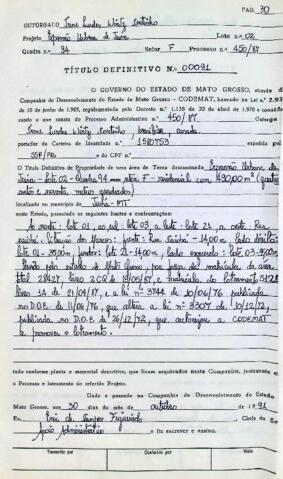 PAG. 30
OUTORGADO
Projeto Expansão Urbana de Juína Lote nº 02
Quadra n.º 94 Setor F Processo nº 450/87
TÍTULO DEFINITIVO N.º 00091
O GOVERNO DO ESTADO DE MATO GROSSO, através da
Companhia de Desenvolvimento do Estado de Mato Grosso - CODEMAT, com base na Lei n.º 2.93
de junho de 1969, regulamentada pelo Decreto n.º 1.138 de 30 de abril de 1970 e constando
do o que consta do Processo Administrativo n.º 450/87 Outorga
brasileira, casada
portador da Carteira de Identidade n.º 1580753 expedida
SSP/PR e do CPF n.º
O Título Definitivo de Propriedade de uma área de Terra denominada Expansão Urbana de
Juína - Lote 02 - Quadra 94 - setor F - residencial com 490,00m² (quatro
centos e noventa metros quadrados)
localizado no município de Juína - MT
neste Estado, possuindo os seguintes limites e confrontações:
Ao norte: lote 01, ao sul: lote 03, a leste: lote 21, a oeste: Rua
frente: Rua 14,00m, lado direito:
lote 01 - 35,00m, fundos: lote 21 - 14,00m, lado esquerdo: lote 03 - 35,00m
pelo estado de Mato Grosso, por força da matrícula da área
total 28427, livro 2CQ de 19/05/87, e matrícula do loteamento
livro 1A de 21/09/87, e a lei nº 3744 de 10/06/76 publicada
no D.O.E de 11/06/76, que altera a lei nº 3307 de 10/12/72,
publicada no D.O.E de 26/12/72, que autorizou a CODEMAT
a promover o loteamento.
tudo conforme planta e memorial descritivo, que ficam arquivados nesta Companhia, juntamente com
o Processo e lateamento do referido Projeto.
Dado e passado na Companhia de Desenvolvimento do Estado
Mato Grosso, aos 30 dias do mês de outubro de 1991
Eu, Chefe do
Apoio Administrativo o fiz escrever e assino.
Transcrito por Conferido por Visto